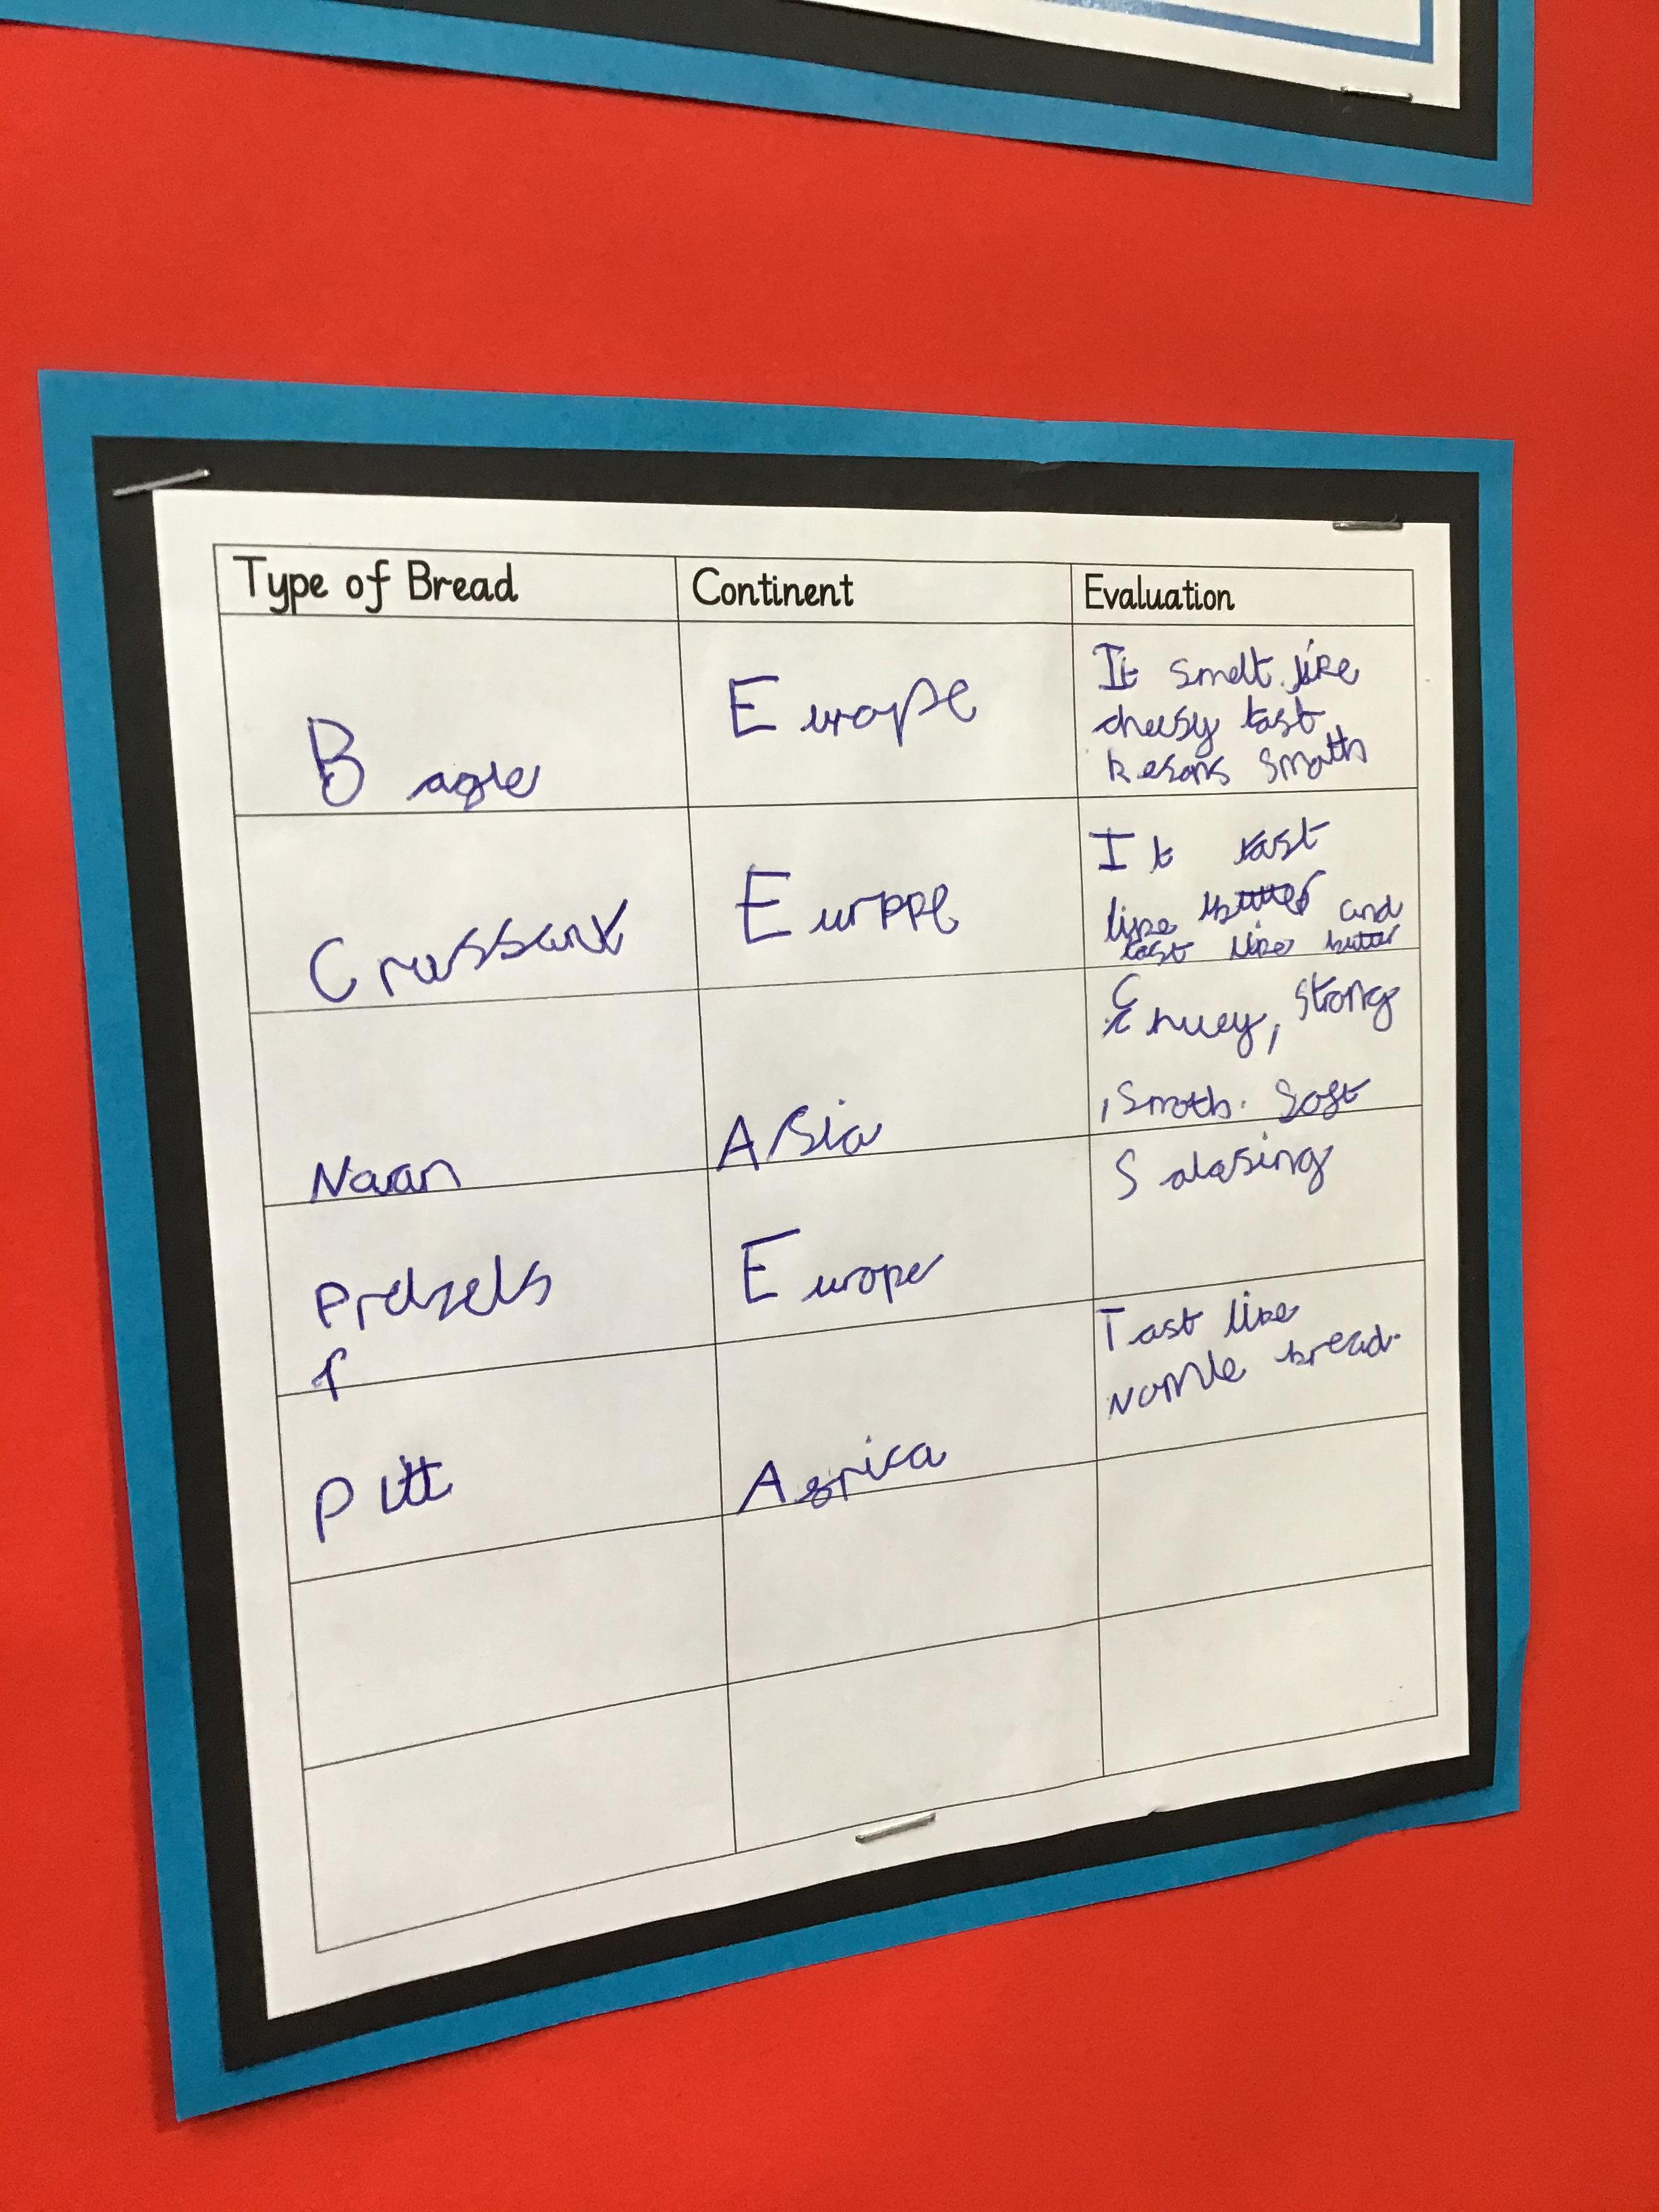 Type of Bread Continent Evaluation
Bagle Europe It smelt like
cheesy tast
smoth
Crussant Europe It tast
like butter and
tast like butter
Naan Asia Chuey, strong
, Smoth. Soft
Pretzels Europe Salasing
Pitt Africa Tast like
nomle bread.